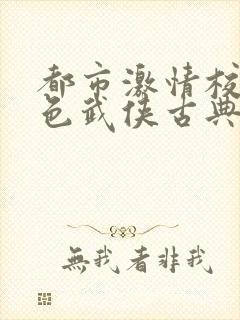 都市激情校
色武侠古典
無我者非我